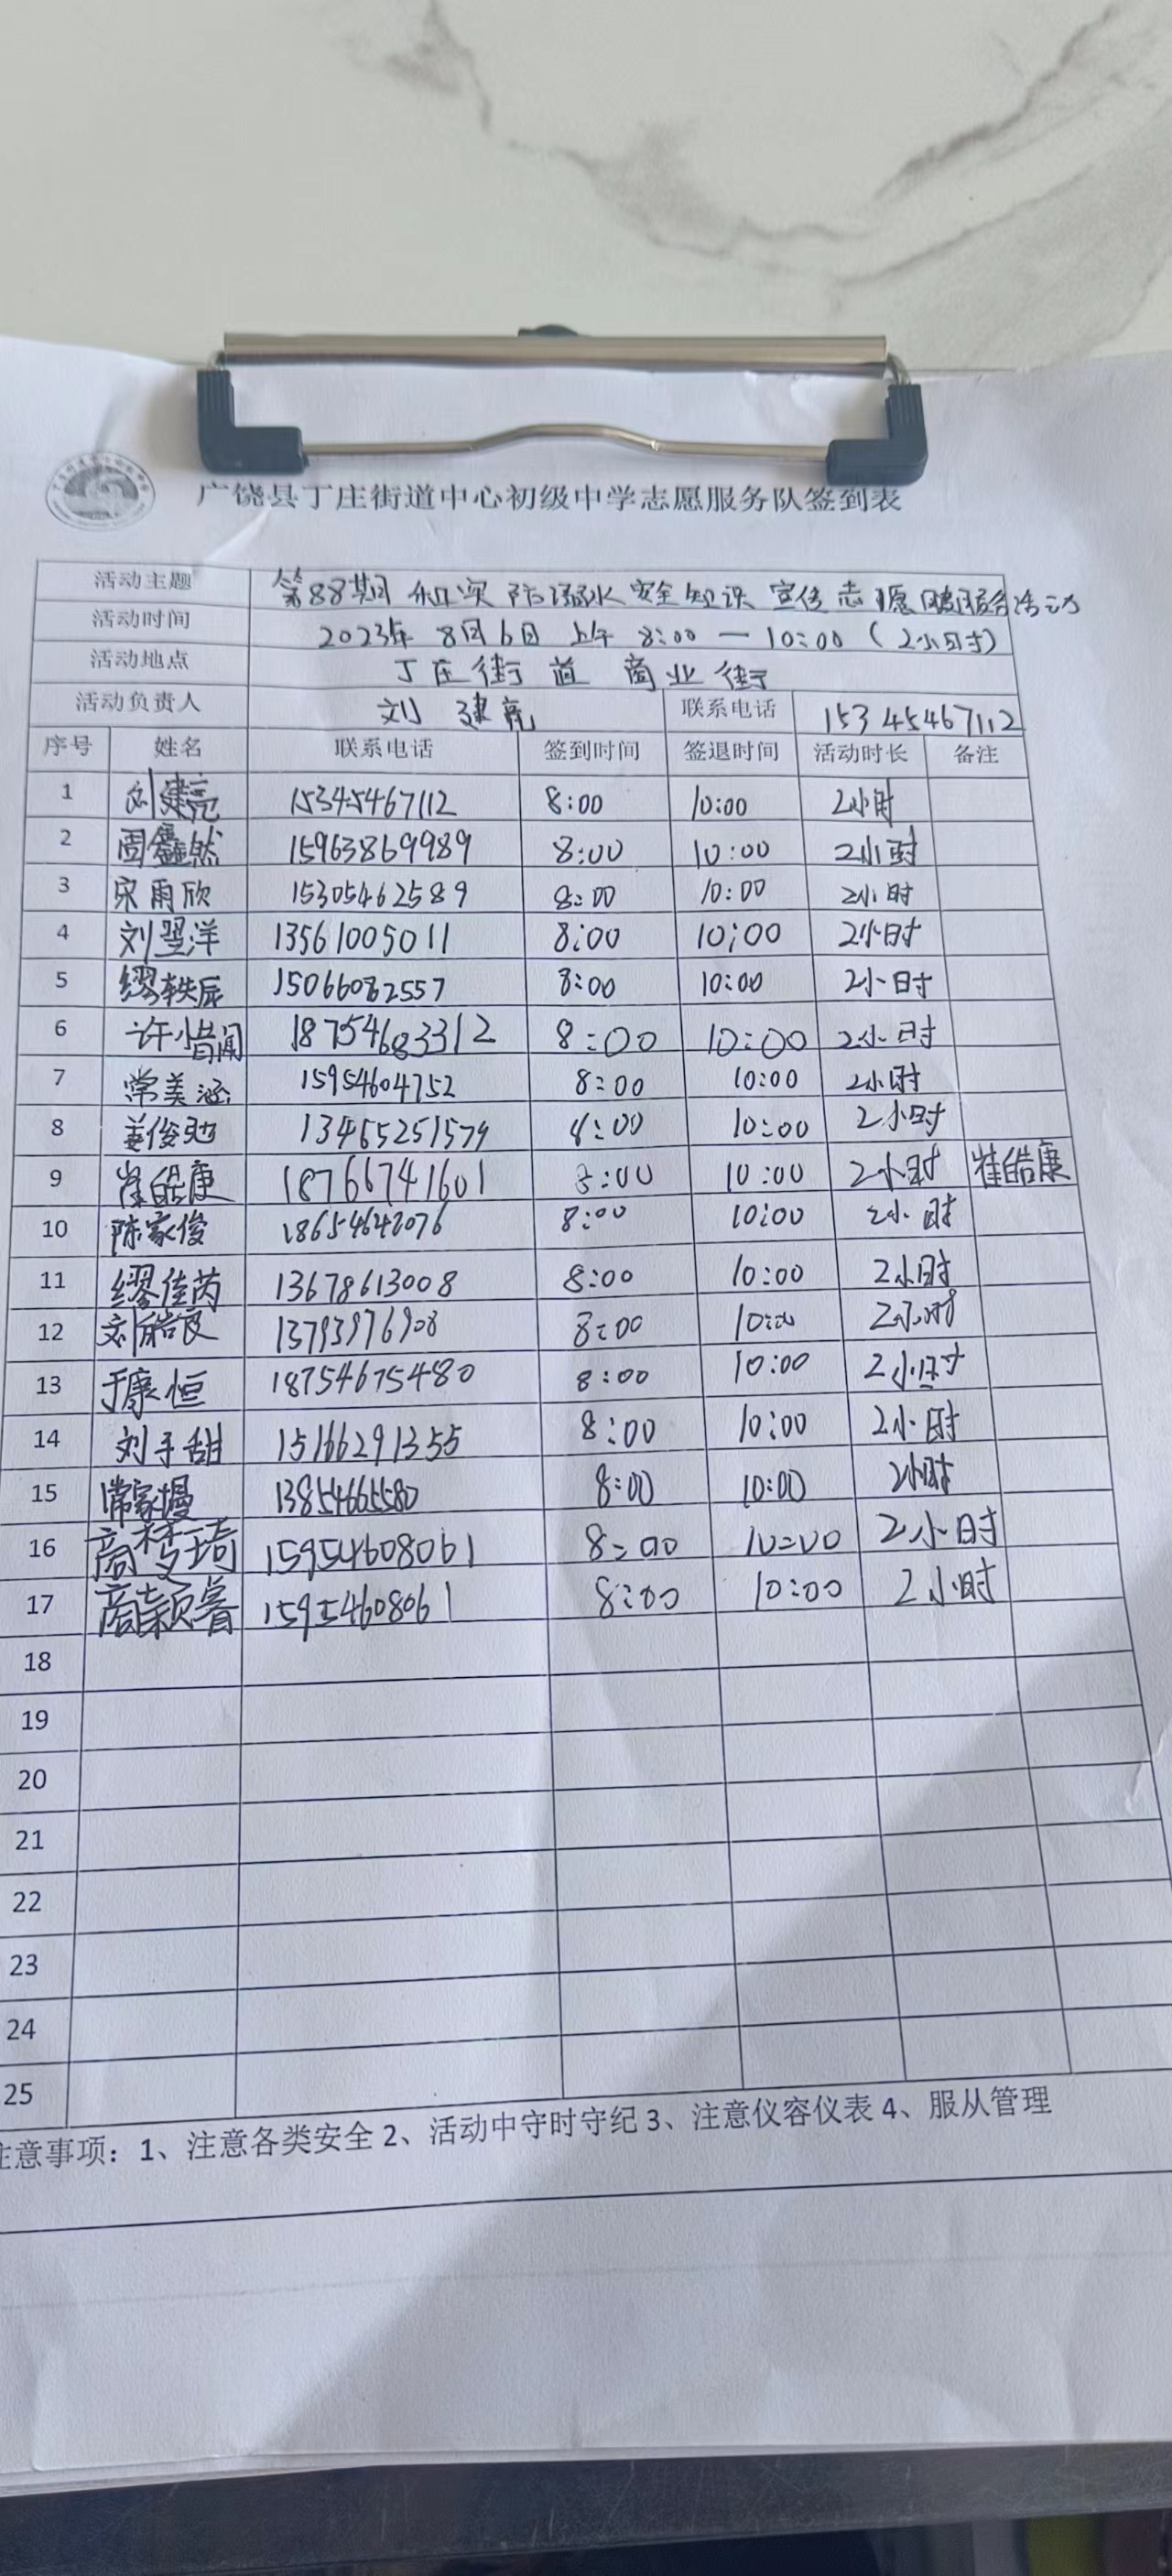 广饶县丁庄街道中心初级中学志愿服务队签到表
活动主题 第88期 知实 防溺水 安全知识 宣传志愿服务活动
活动时间 2023年 8月6日 上午 8:00 — 10:00 (2小时)
活动地点 丁庄街道 商业街
活动负责人 刘建亮 联系电话 15345467112
序号 姓名 联系电话 签到时间 签退时间 活动时长 备注
1 刘建亮 15345467112 8:00 10:00 2小时
2 周鑫然 15963869989 8:00 10:00 2小时
3 宋雨欣 15305462589 8:00 10:00 2小时
4 刘翌洋 13561005011 8:00 10:00 2小时
5 缪轶辰 15066082557 8:00 10:00 2小时
6 许小 18754683312 8:00 10:00 2小时
7 常美涵 15954604752 8:00 10:00 2小时
8 姜俊 13465251579 8:00 10:00 2小时
9 崔皓康 18766741601 8:00 10:00 2小时 崔皓康
10 陈家俊 8:00 10:00 2小时
11 缪佳芮 13678613008 8:00 10:00 2小时
12 刘皓良 13793976908 8:00 10:00 2小时
13 于康恒 18754675480 8:00 10:00 2小时
14 刘于甜 15166291355 8:00 10:00 2小时
15 常家墁 13854665580 8:00 10:00 2小时
16 商梦琦 15954608061 8:00 10:00 2小时
17 商颖 15954608061 8:00 10:00 2小时
18
19
20
21
22
23
24
25
注意事项：1、注意各类安全 2、活动中守时守纪 3、注意仪容仪表 4、服从管理